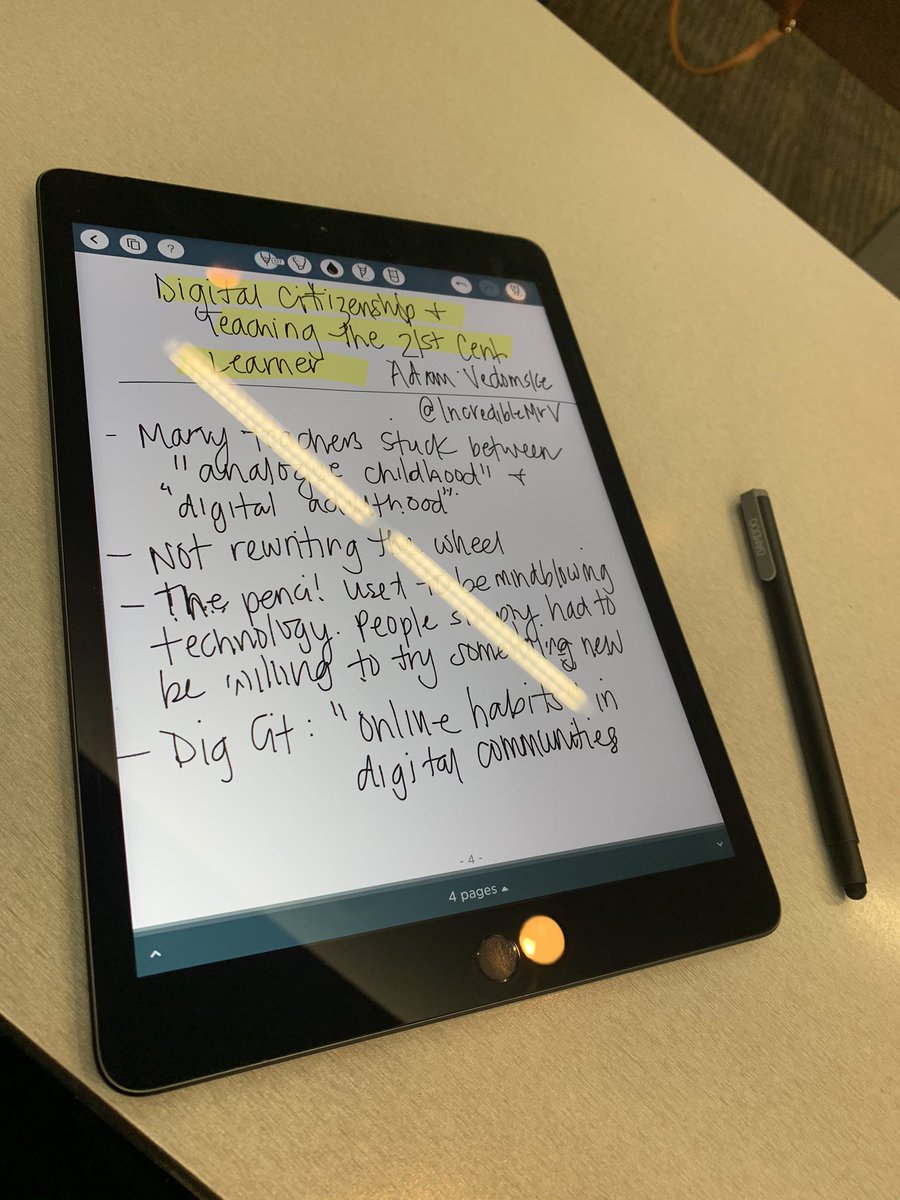 Digital Citizenship +
teaching the 21st Cent
Learner
Adam Vedomske
@IncredibleMrV
- Many teachers stuck between
"analogue childhood" +
"digital adulthood".
- Not rewriting the wheel
- The pencil used to be mindblowing
technology. People simply had to
be willing to try something new
- Dig Cit: "online habits" in
digital communities
- 4 -
4 pages
bamboo